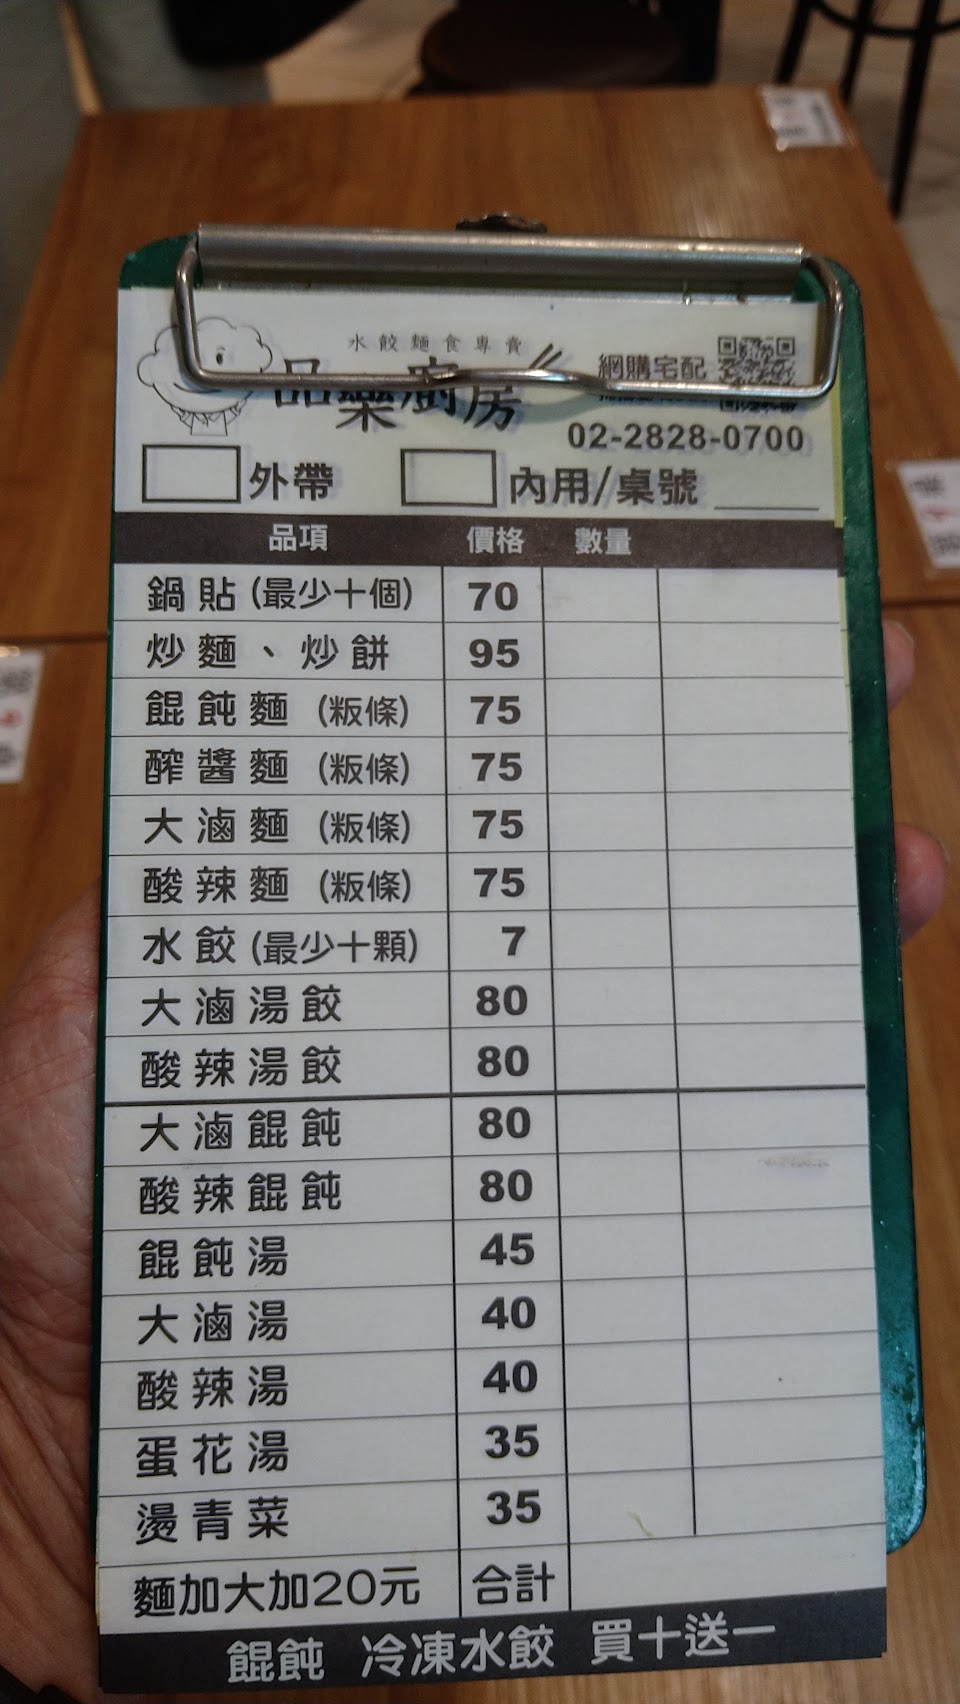 水餃麵食專賣
品樂廚房
網購宅配
02-2828-0700
外帶 內用/桌號
品項 價格 數量
鍋貼(最少十個) 70
炒麵、炒餅 95
餛飩麵(粄條) 75
醡醬麵(粄條) 75
大滷麵(粄條) 75
酸辣麵(粄條) 75
水餃(最少十顆) 7
大滷湯餃 80
酸辣湯餃 80
大滷餛飩 80
酸辣餛飩 80
餛飩湯 45
大滷湯 40
酸辣湯 40
蛋花湯 35
燙青菜 35
麵加大加20元 合計
餛飩 冷凍水餃 買十送一